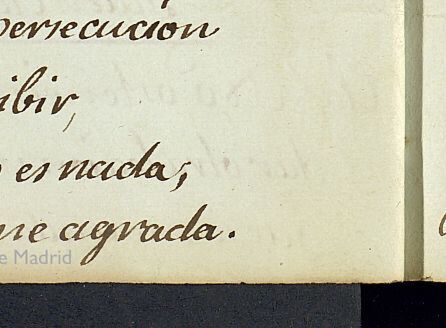 persecucion
ibir,
es nada;
me agrada.
e Madrid